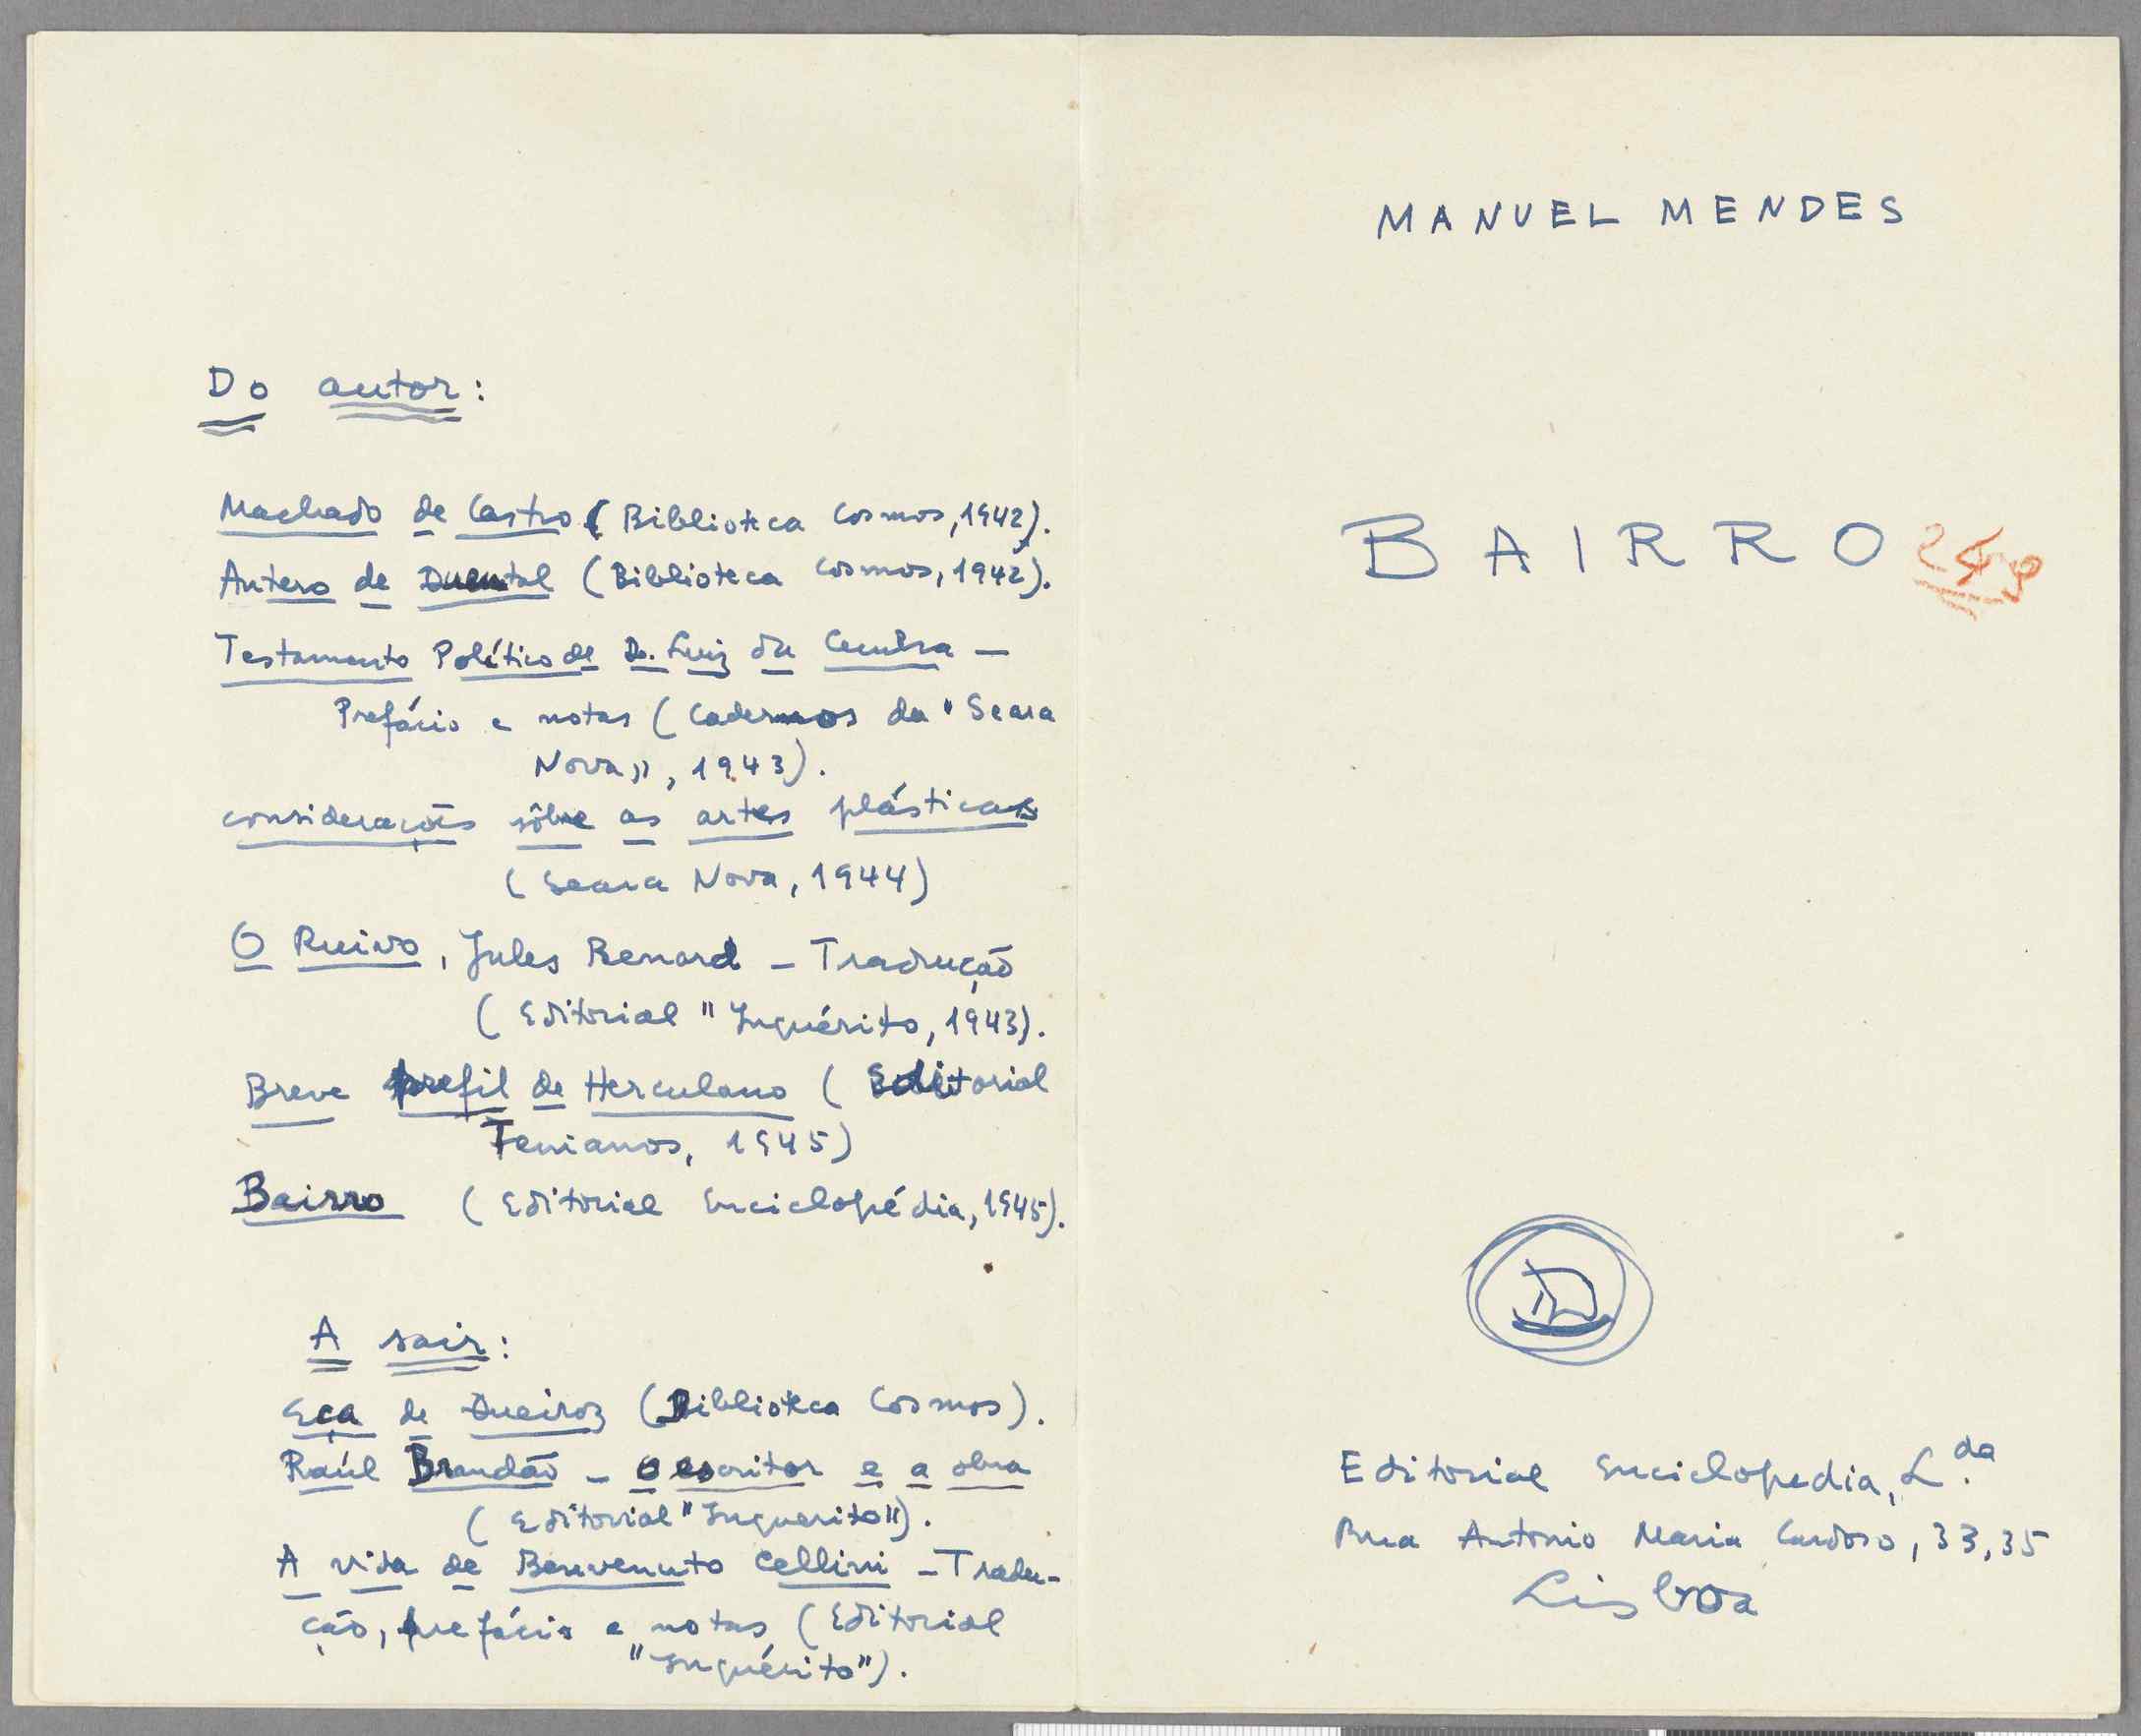 Do autor:
Machado de Castro (Biblioteca Cosmos, 1942).
Antero de Quental (Biblioteca Cosmos, 1942).
Testamento Político de D. Luiz da Cunha —
Prefácio e notas (Cadernos da "Seara
Nova», 1943).
considerações sôbre as artes plásticas
(Seara Nova, 1944)
O Ruivo, Jules Renard - Tradução
(Editorial "Inquérito, 1943).
Breve perfil de Herculano (Editorial
Fenianos, 1945)
Bairro (Editorial Enciclopédia, 1945).
A sair:
Eça de Queiroz (Biblioteca Cosmos).
Raúl Brandão - o escritor e a obra
(Editorial "Inquerito").
A vida de Benvenuto Cellini - Tradu-
ção, prefácio e notas (Editorial
"Inquérito").
MANUEL MENDES
BAIRRO
Editorial Enciclopedia, L.da
Rua Antonio Maria Cardoso, 33, 35
Lisboa